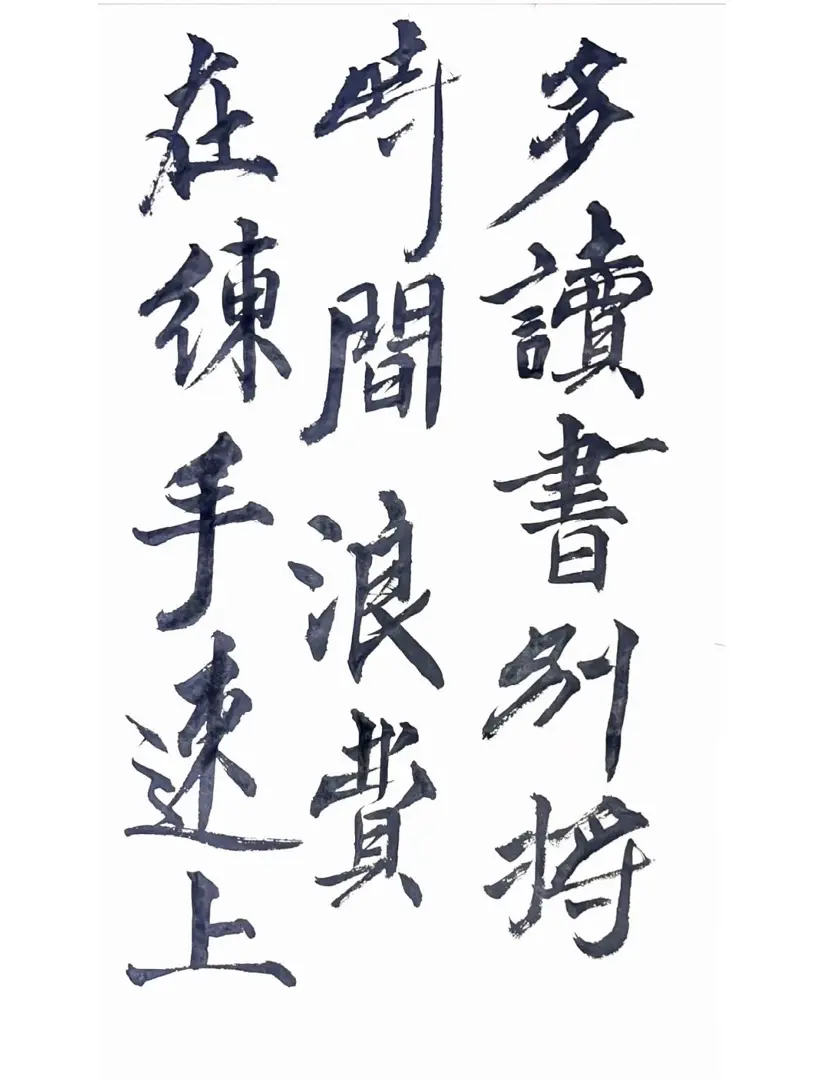 多讀書別將
時間浪費
在練手速上